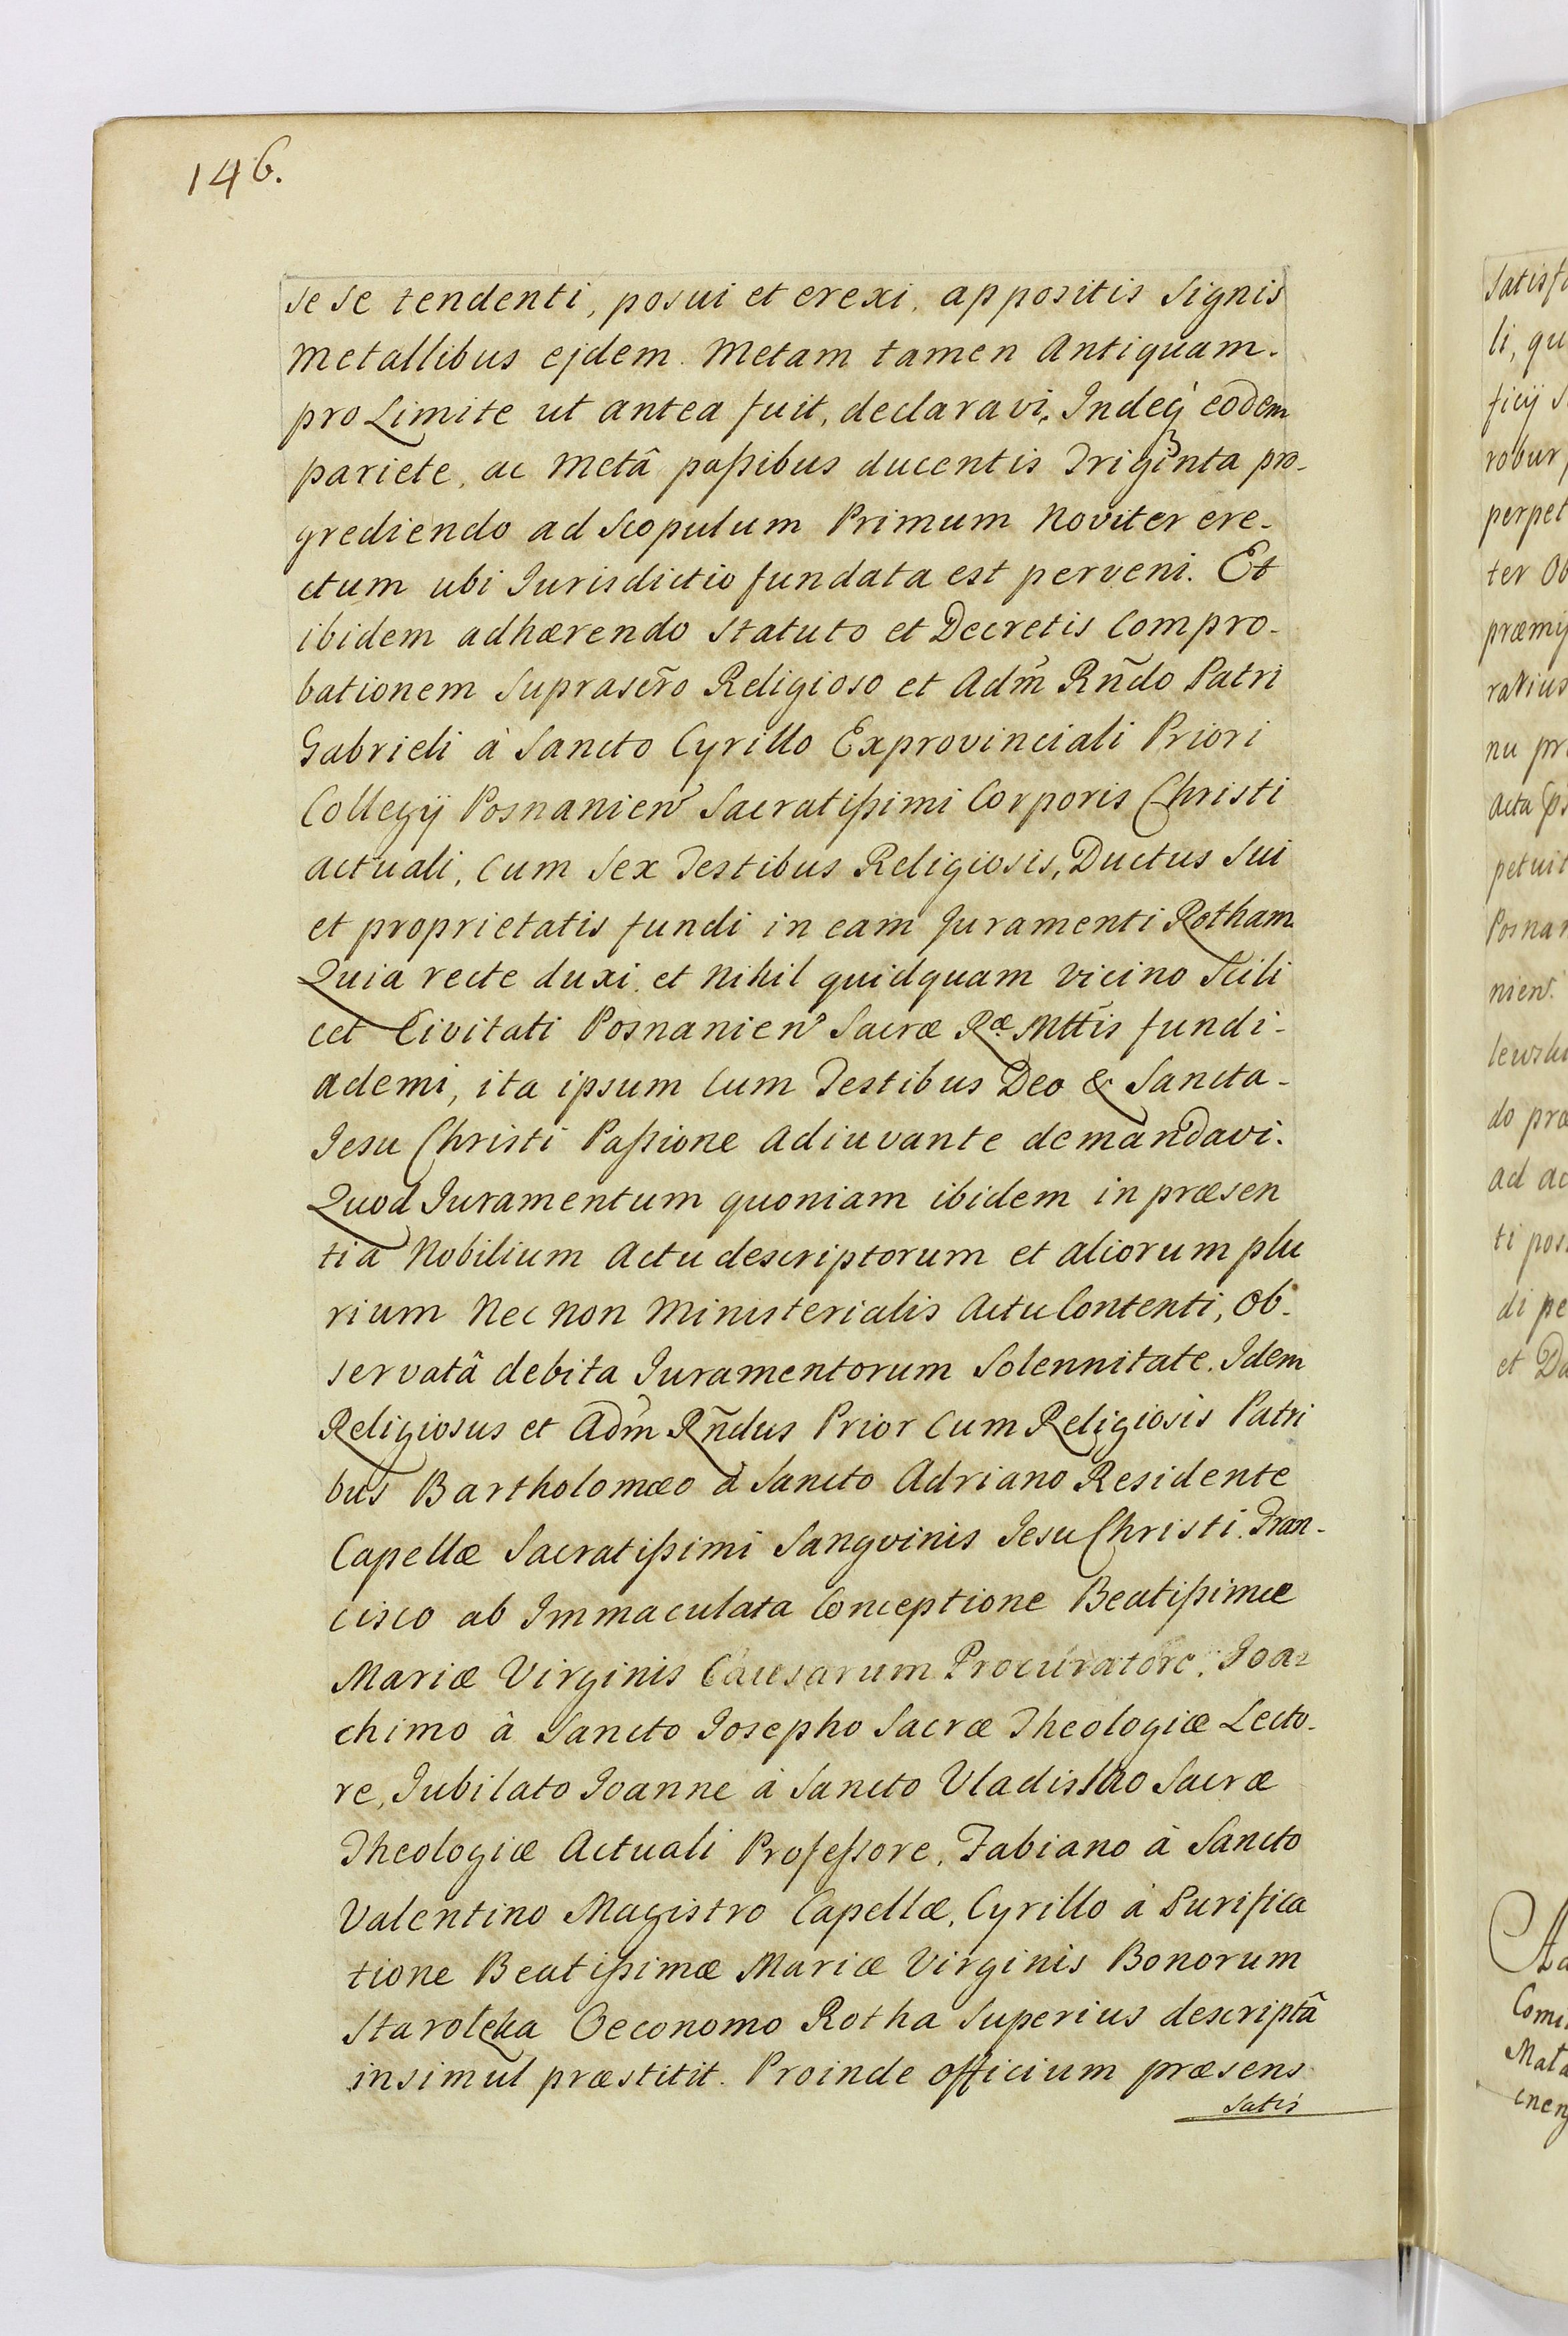 146.
se se tendenti, posui et erexi, appositis Signis
Metallibus ejdem. Metam tamen Antiquam.
pro Limite ut antea fuit, declaravi, Indeq́ eodem
pariete, ac Metâ paſsibus ducentis Triginta pro-
grediendo ad Scopulum Primum Noviter ere-
ctum ubi Jurisdictio fundata est perveni. Et
ibidem adhærendo Statuto et Decretis Compro-
bationem Suprascr̃o Religioso et Adm̃ Rñdo Patri
Gabrieli à Sancto Cyrillo Exprovinciali Priori
Collegÿ Posnanien Sacratiſsimi Corporis Christi
actuali, Cum Sex Testibus Religiosis, Ductus Sui
et proprietatis fundi in eam Juramenti Rotham
Quia recte duxi et Nihil quidquam Vicino Scili
cet Civitati Posnanien Sacræ Ræ Mttis fundi-
ademi, ita ipsum Cum Testibus Deo & Sancta-
Jesu Christi Paſsione Adiuvante demandavi.
Quod Juramentum quoniam ibidem in præsen
tia Nobilium Actu descriptorum et aliorum plu
rium Nec non Ministerialis Actu Contenti, Ob-
servatâ debita Juramentorum Solennitate. Idem
Religiosus et Adm̃ Rñdus Prior Cum Religiosis Patri
bus Bartholomæo à Sancto Adriano Residente
Capellæ Sacratiſsimi Sangvinis Jesu Christi. Fran-
cisco ab Immaculata Conceptione Beatiſsimæ
Mariæ Virginis Causarum Procuratore, Joa-
chimo â Sancto Josepho Sacræ Theologiæ Lecto-
re, Jubilato Joanne à Sancto Vladislao Sacræ
Theologiæ Actuali Profeſsore, Fabiano à Sancto
Valentino Magistro Capellæ, Cyrillo à Purifica
tione Beatiſsimæ Mariæ Virginis Bonorum
Starolęka Oeconomo Rotha Superius descriptâ
insimul præstitit. Proinde Officium præsens
Satis
li, qu
robur
perpet
ter Ob
nu pr
petuit
Posnan
nien
do præ
ad ac
ti pos
di pe
et Da